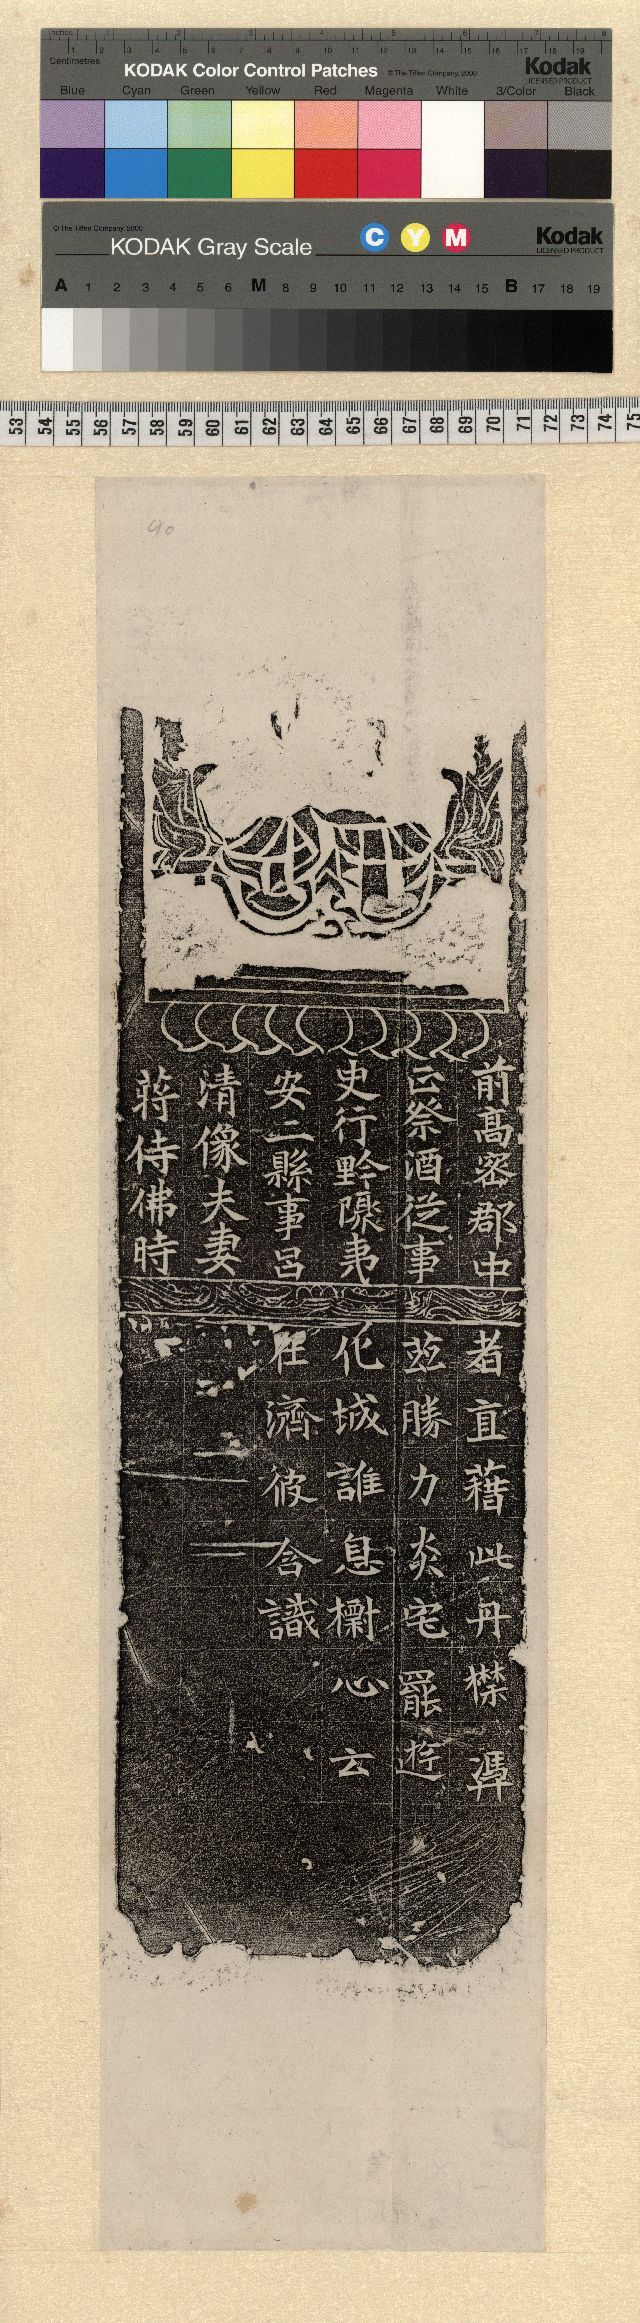 Inches 1 2 3 4 5 6 7 8
Centimetres 1 2 3 4 5 6 7 8 9 10 11 12 13 14 15 16 17 18 19
KODAK Color Control Patches © The Tiffen Company, 2000 Kodak
LICENSED PRODUCT
Blue Cyan Green Yellow Red Magenta White 3/Color Black
© The Tiffen Company, 2000
KODAK Gray Scale C Y M Kodak
LICENSED PRODUCT
A 1 2 3 4 5 6 M 8 9 10 11 12 13 14 15 B 17 18 19
53 54 55 56 57 58 59 60 61 62 63 64 65 66 67 68 69 70 71 72 73 74 75
90
前高密郡中
正祭酒従事
史行黔陬夷
安二縣事呂
清像夫妻
蒋侍佛時
者直藉此丹襟
茲勝力炎宅罷遊
化城誰息心云
在濟彼含識